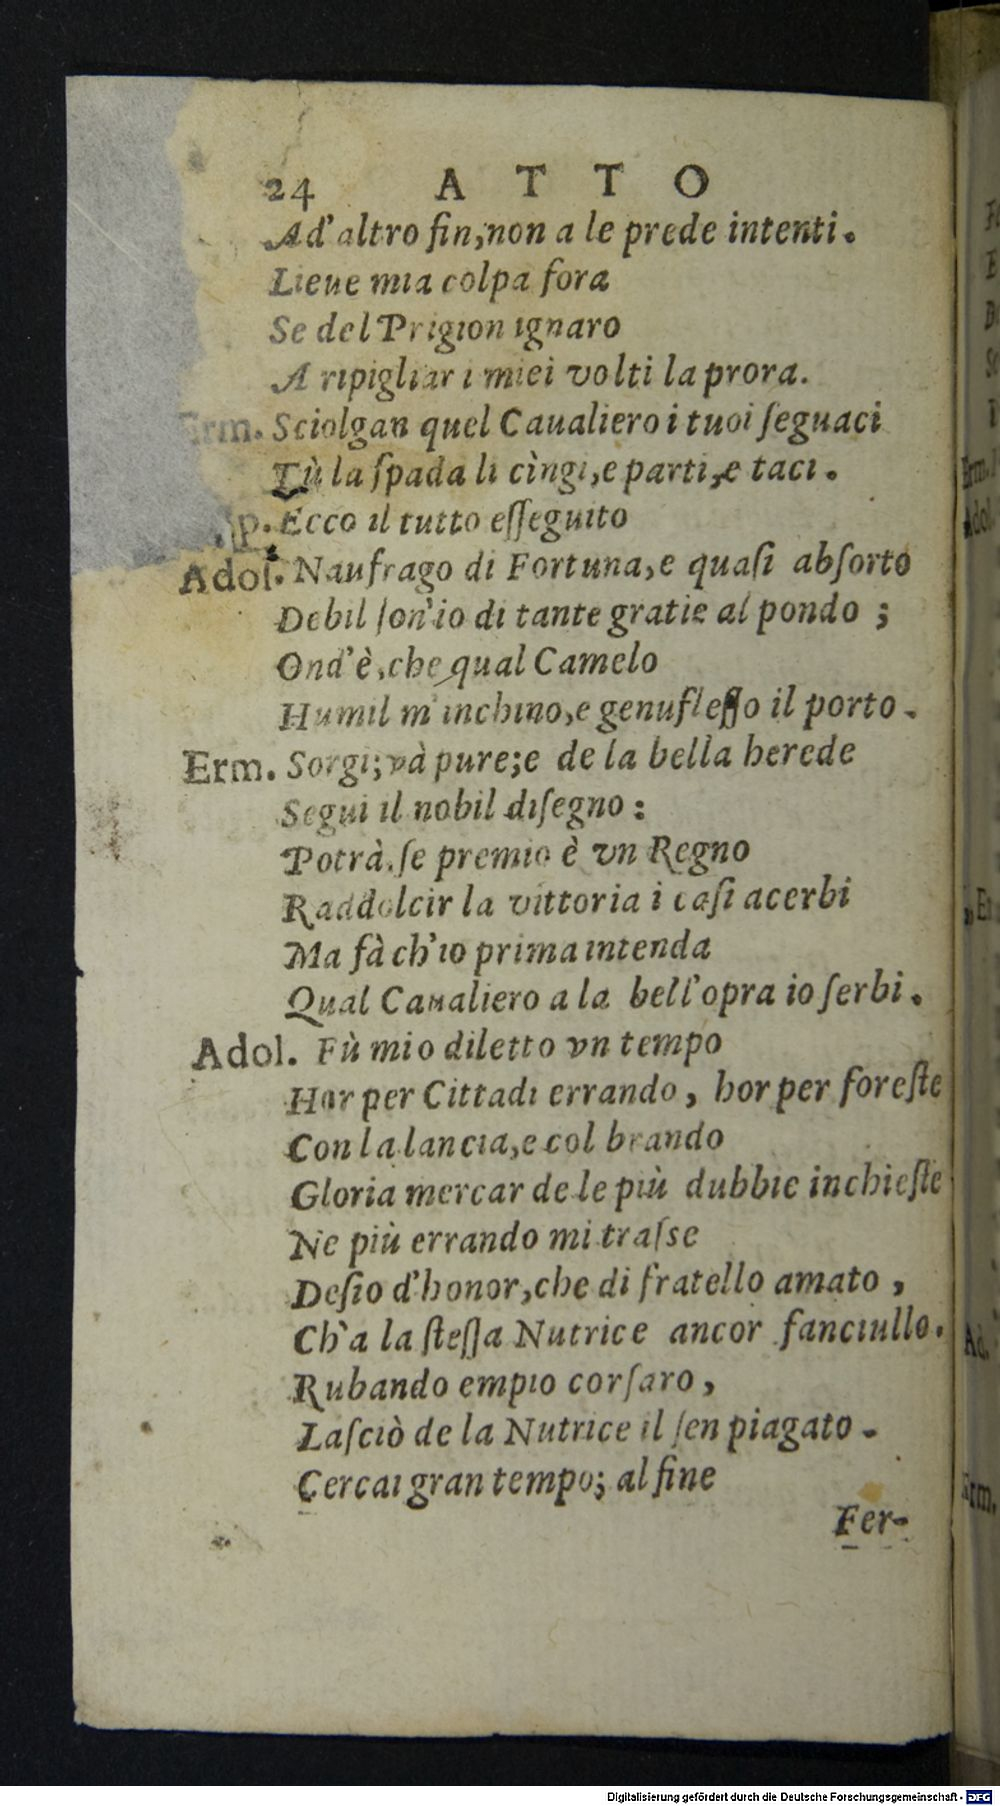 24 ATTO
Ad'altro fin,non a le prede intenti.
Lieue mia colpa fora
Se del Prigion ignaro
A ripigliar i miei volti la prora.
Erm. Sciolgan quel Caualiero i tuoi ſeguaci
Tù la ſpada li cìngi,e parti,e taci.
p. Ecco il tutto eſſeguito
Adol. Naufrago di Fortuna,e quaſi abſorto
Debil ſon'io di tante gratie al pondo ;
Ond'è,che qual Camelo
Humil m'inchino,e genufleſſo il porto.
Erm. Sorgi;và pure;e de la bella herede
Segui il nobil diſegno :
Potrà,ſe premio è vn Regno
Raddolcir la vittoria i caſi acerbi
Ma fà ch'io prima intenda
Qual Caualiero a la bell'opra io ſerbi.
Adol. Fù mio diletto vn tempo
Hor per Cittadi errando , hor per foreſte
Con la lancia,e col brando
Gloria mercar de le più dubbie inchieſte
Ne più errando mi traſse
Deſio d'honor,che di fratello amato ,
Ch'a la ſteſſa Nutrice ancor fanciullo.
Rubando empio corſaro ,
Laſciò de la Nutrice il ſen piagato.
Cercai gran tempo; al fine
Fer-
Erm.
Adol.
Ad.
Erm.
Digitalisierung gefördert durch die Deutsche Forschungsgemeinschaft - DFG